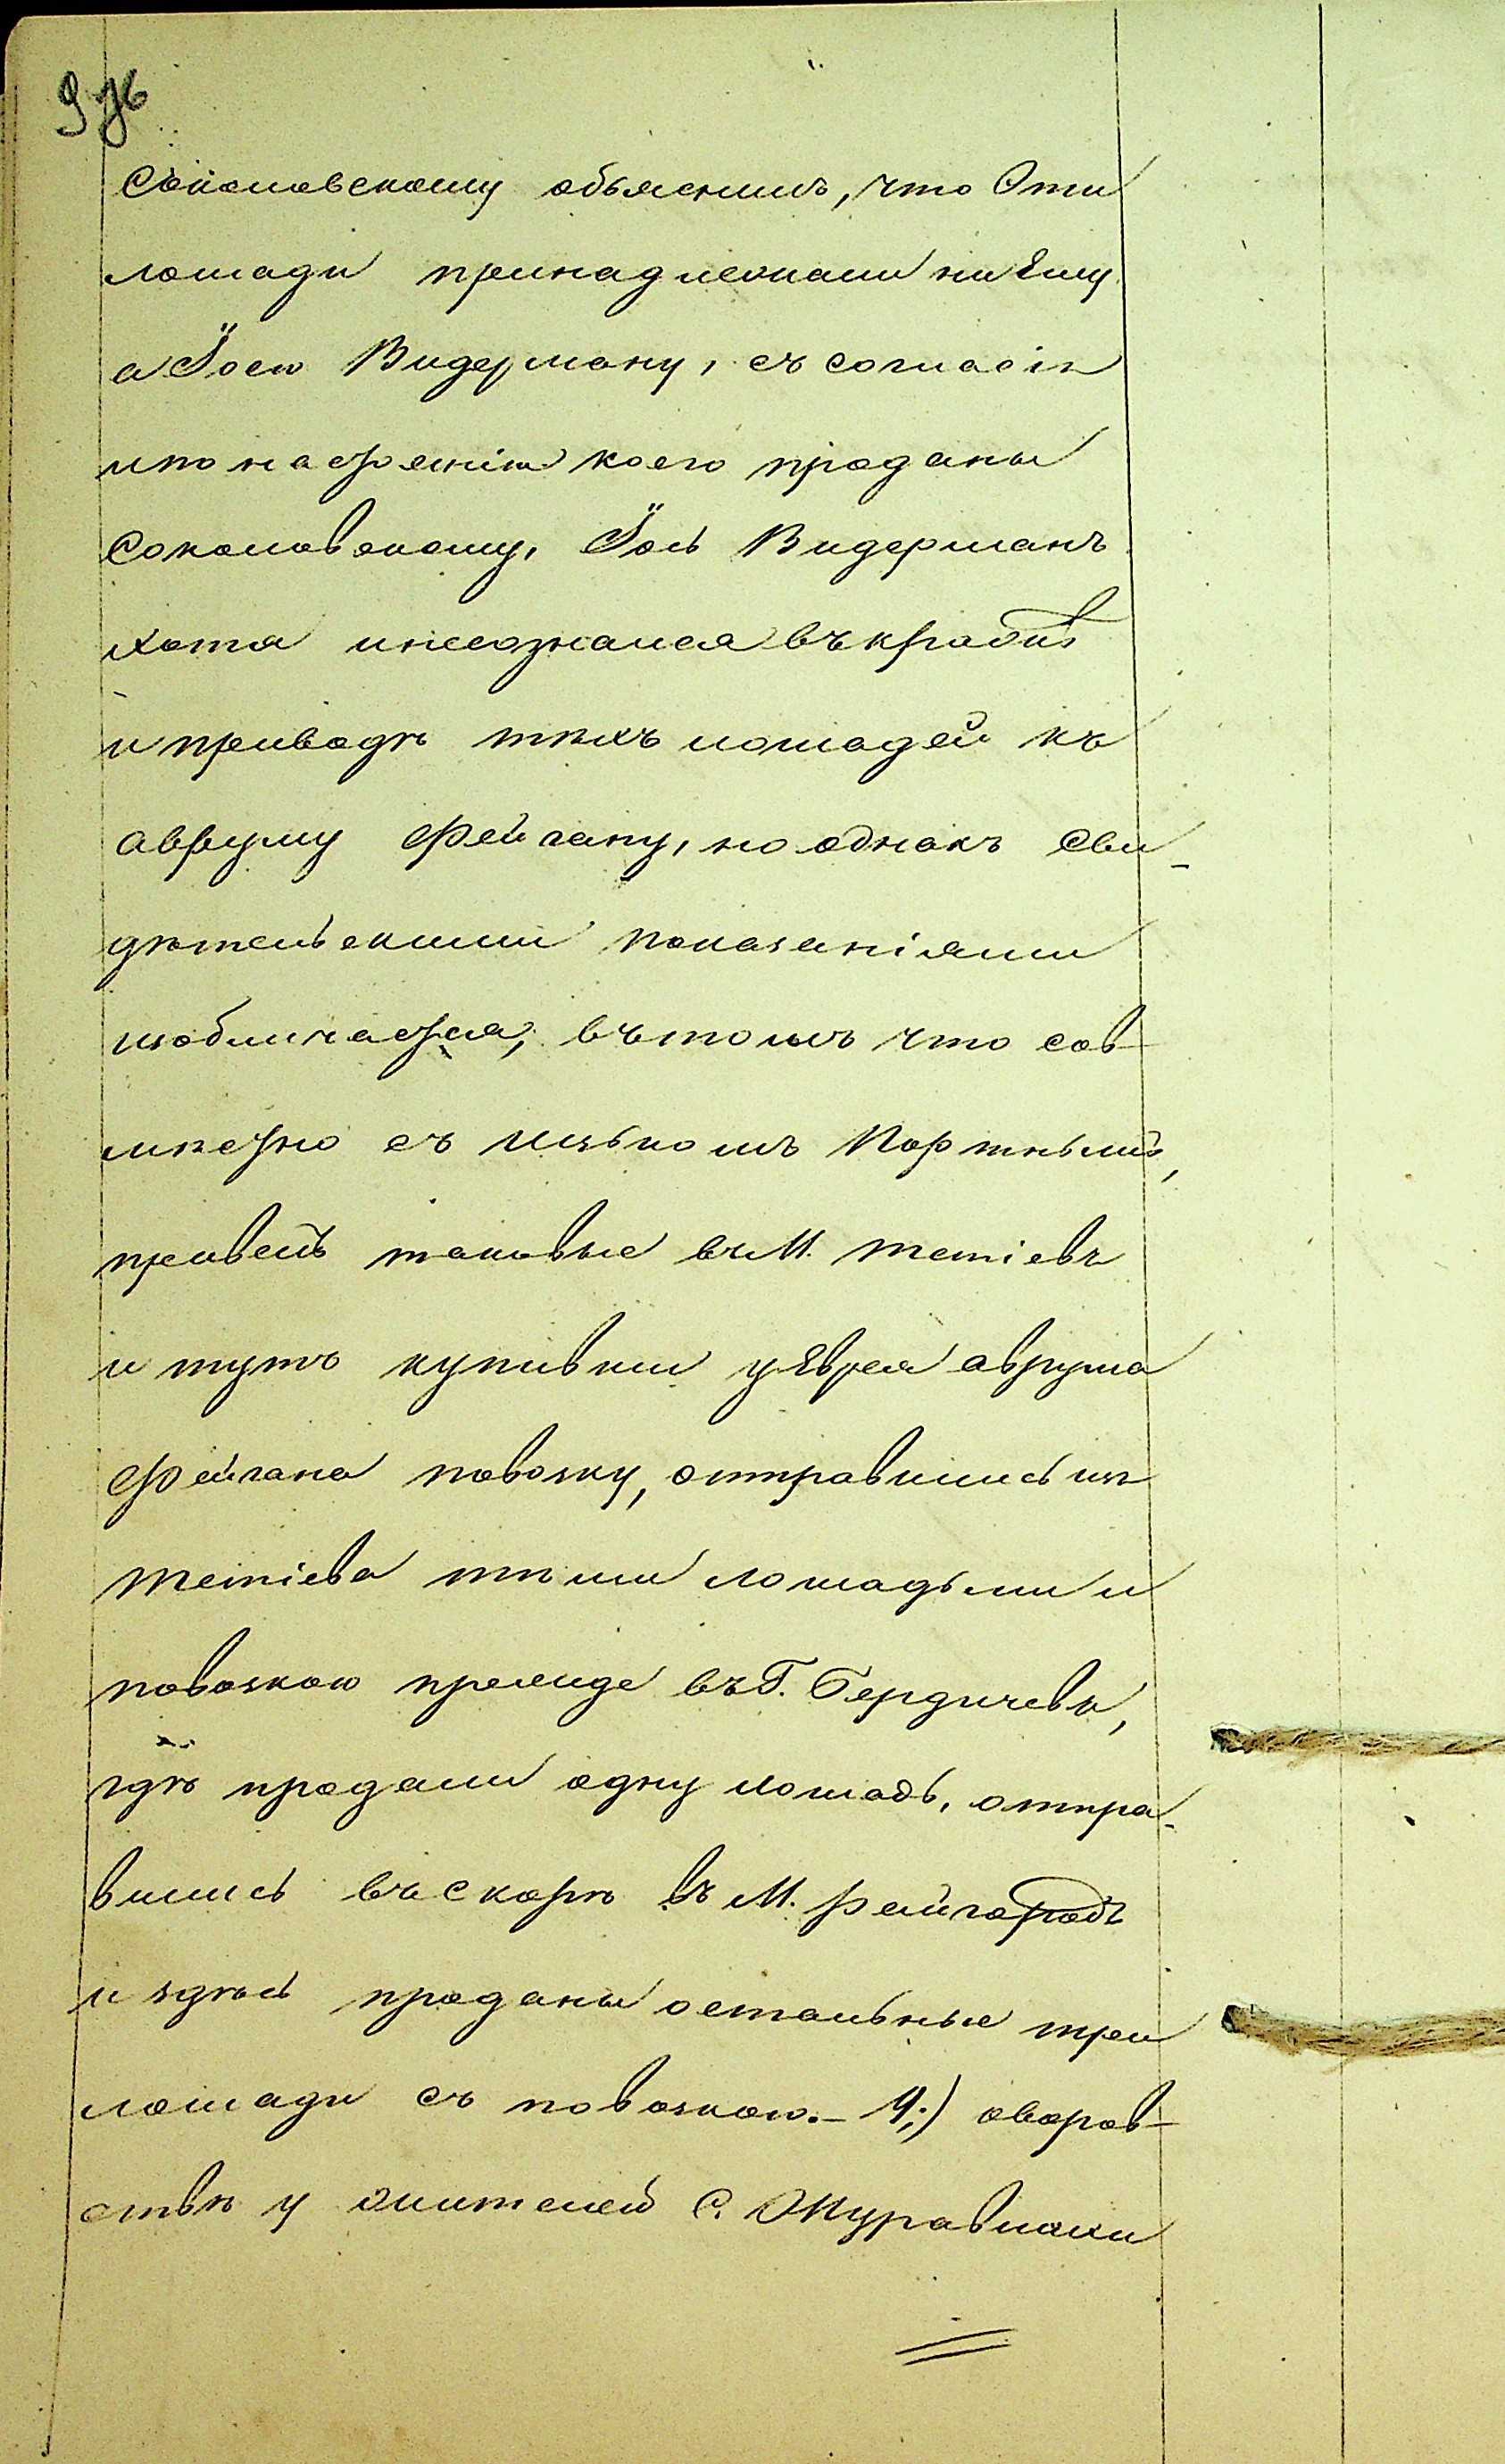 976
Соколовскому объяснилъ, что Эти
лошади принадлежали не Ему
а Іосю Видерману, съ согласія
и по настоянію коего проданы
Соколовскому, Іось Видерманъ
хотя и несознался въ кражѣ
и приводѣ тѣхъ лошадей къ
Авруму Фейгану, но однакъ сви-
дѣтельскими показаніями
изобличается, въ томъ что сов-
мѣстно съ Ицькомъ Портнымъ,
привелъ таковые въ М. Тетіевъ
и тутъ купивши у Еврея Аврума
Фейгана повозку, отправились изъ
Тетіева тѣми лошадьми и
повозкою прежде въ Г. Бердичевъ,
гдѣ продали одну лошадь, отпра-
вились въ скорѣ въ М. Райгородъ
и здѣсь проданы остальные три
лошади съ повозкою.- 4;) о воров-
ствѣ у жителей С. Журавлихи